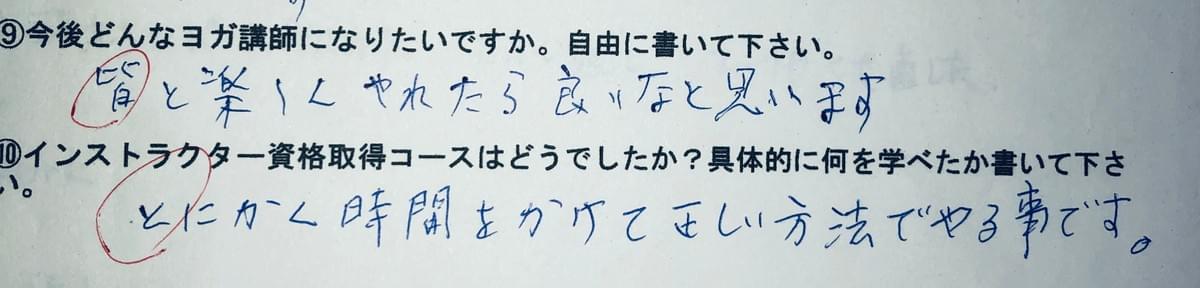 ⑨今後どんなヨガ講師になりたいですか。自由に書いて下さい。
皆と楽しくやれたら良いなと思います
⑩インストラクター資格取得コースはどうでしたか？具体的に何を学べたか書いて下さ
い。
とにかく時間をかけて正しい方法でやる事です。